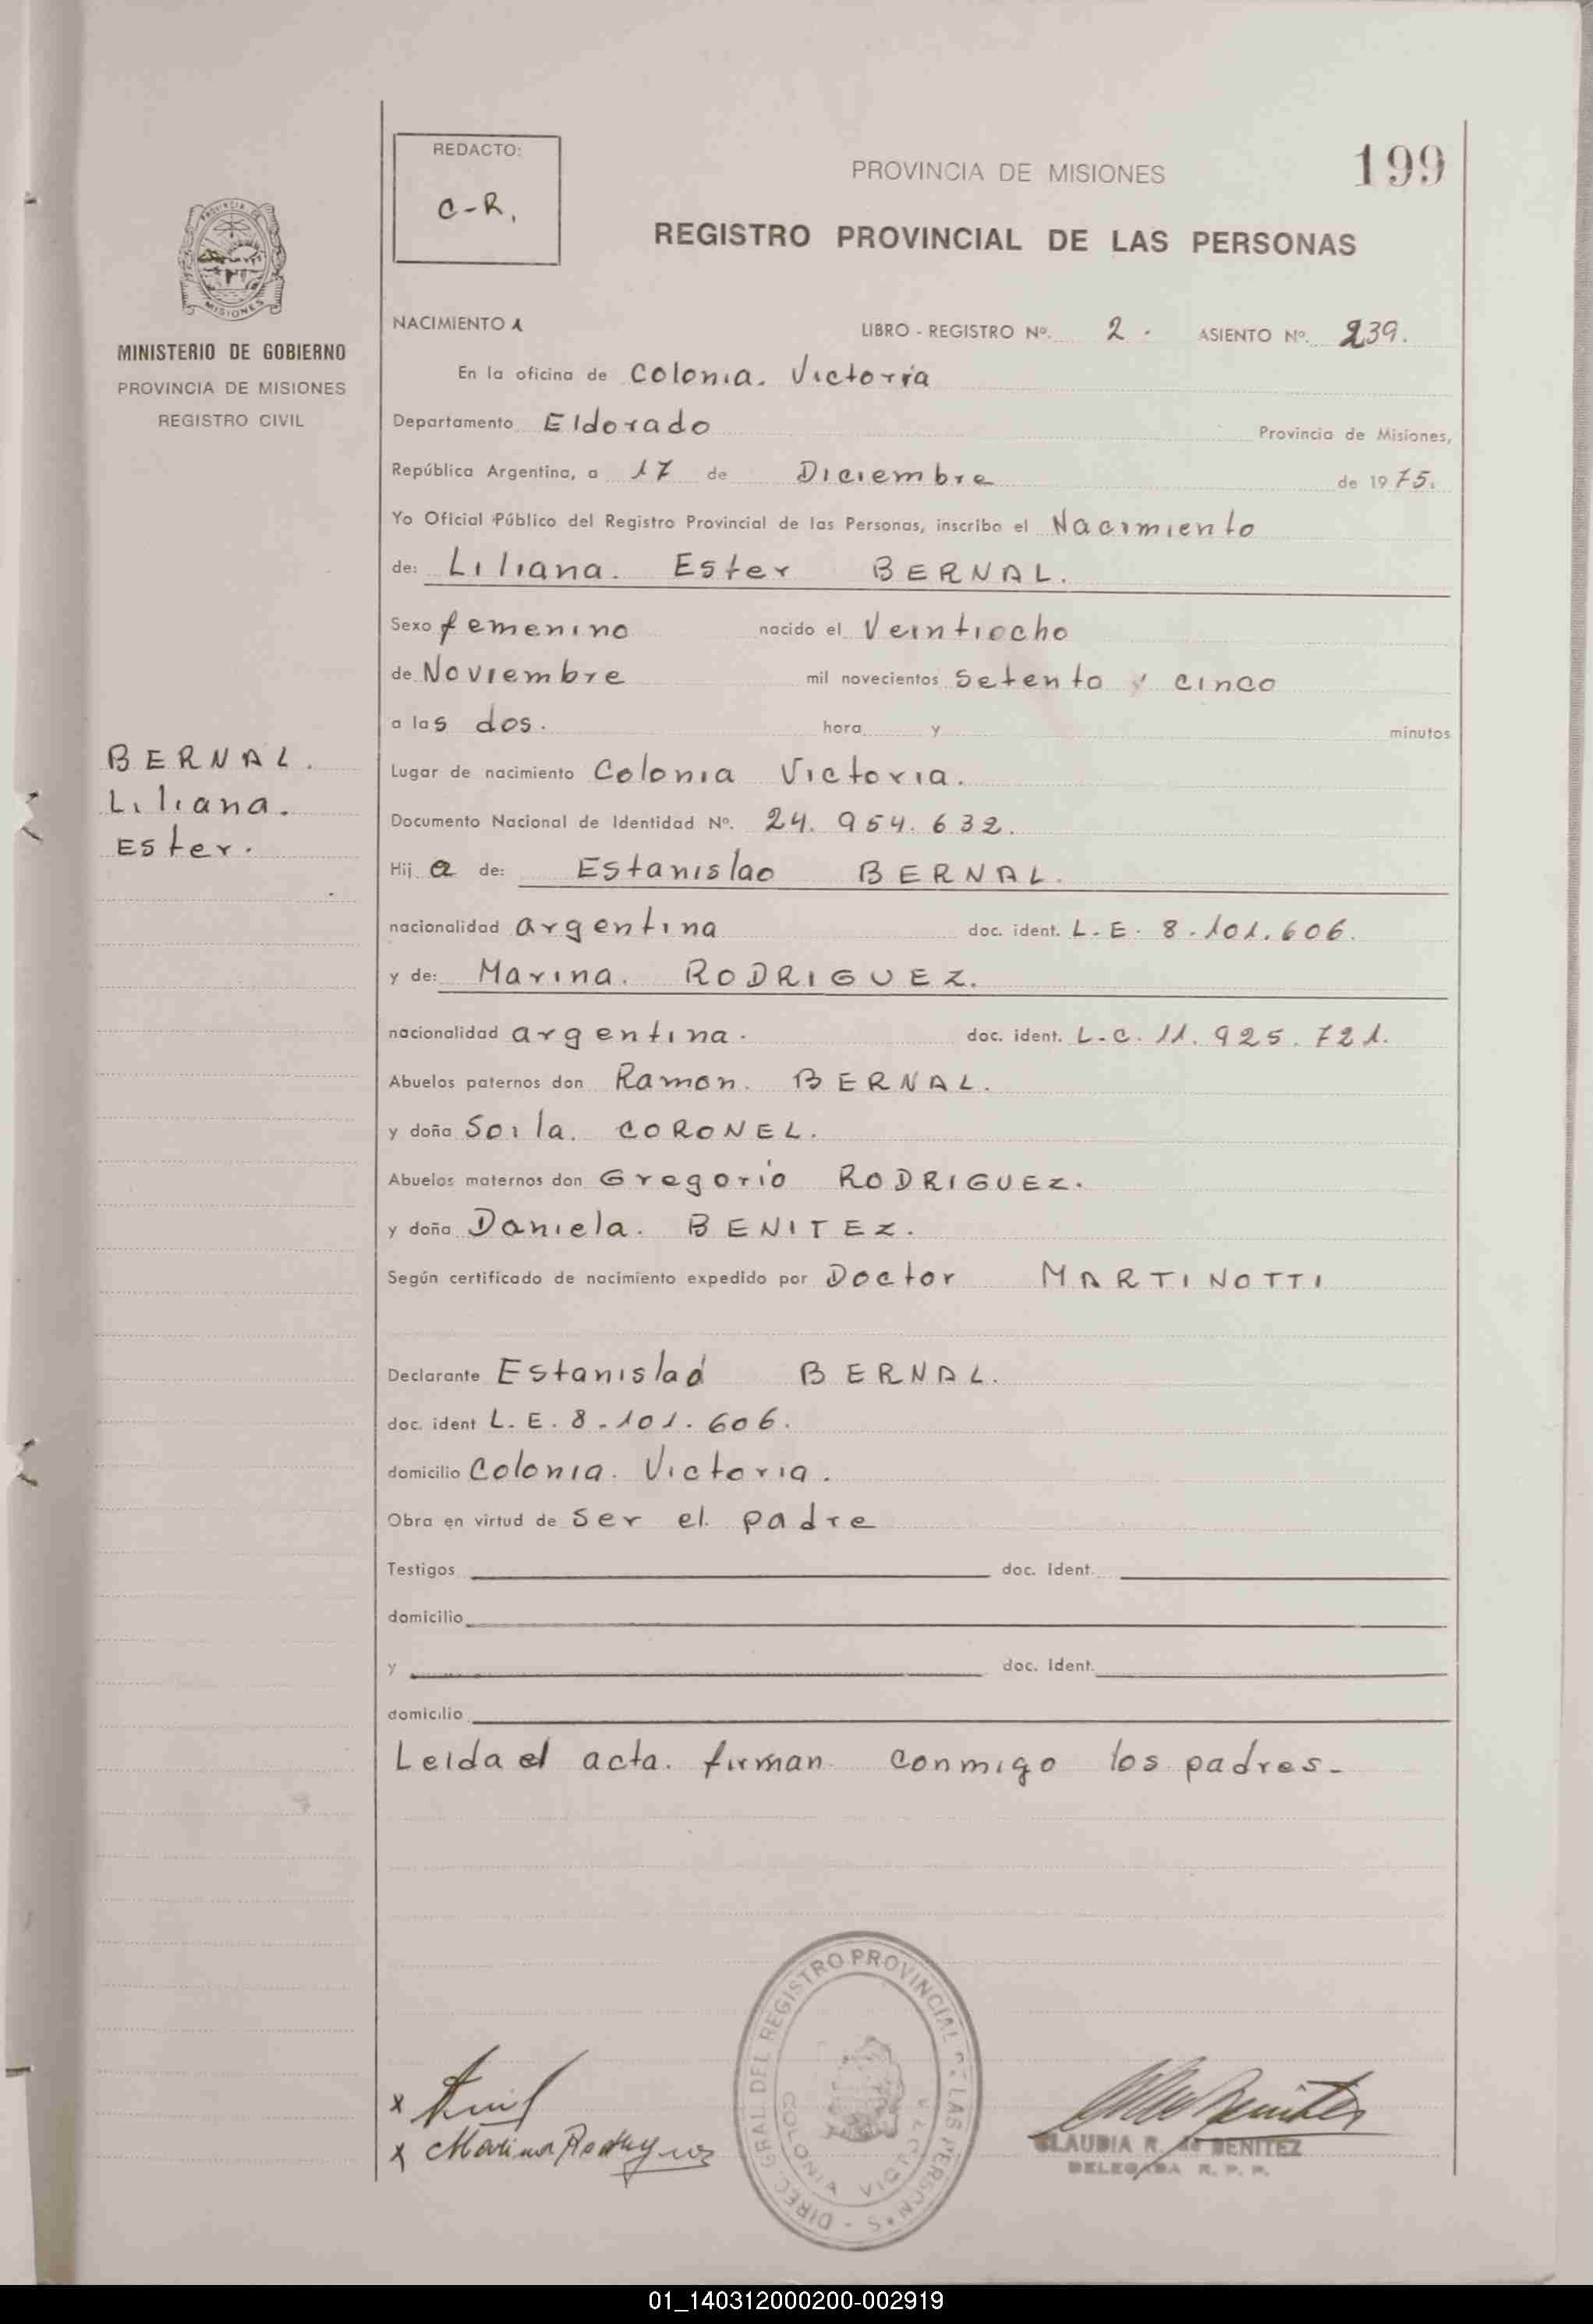 REDACTO:
C-R.
PROVINCIA DE MISIONES
199
REGISTRO PROVINCIAL DE LAS PERSONAS
PROVINCIA DE
MISIONES
MINISTERIO DE GOBIERNO
PROVINCIA DE MISIONES
REGISTRO CIVIL
NACIMIENTO LIBRO - REGISTRO Nº. 2. ASIENTO Nº. 239.
En la oficina de Colonia. Victoria
Departamento Eldorado Provincia de Misiones,
República Argentina, a 17 de Diciembre de 1975.
Yo Oficial Público del Registro Provincial de las Personas, inscribo el Nacimiento
de: Liliana. Ester BERNAL.
Sexo femenino nacido el Veintiocho
de Noviembre mil novecientos Setenta y cinco
a las dos. hora y minutos
BERNAL.
Liliana.
Ester.
Lugar de nacimiento Colonia Victoria.
Documento Nacional de Identidad Nº. 24. 954. 632.
Hij a de: Estanislao BERNAL.
nacionalidad argentina doc. ident. L.E. 8.101.606.
y de: Marina. RODRIGUEZ.
nacionalidad argentina. doc. ident. L.C. 11. 925. 721.
Abuelos paternos don Ramon. BERNAL.
y doña Soila. CORONEL.
Abuelos maternos don Gregorio RODRIGUEZ.
y doña Daniela. BENITEZ.
Según certificado de nacimiento expedido por Doctor MARTINOTTI
Declarante Estanislao BERNAL.
doc. ident L.E. 8.101.606.
domicilio Colonia. Victoria.
Obra en virtud de Ser el padre
Testigos doc. Ident.
domicilio
y doc. Ident.
domicilio
Leida el acta. firman conmigo los padres.-
DIREC. GRAL. DEL REGISTRO PROVINCIAL DE LAS PERSONAS
COLONIA VICTORIA
x
x Marina Rodriguez
Benitez
CLAUDIA R. de BENITEZ
DELEGADA R. P. P.
01_140312000200-002919